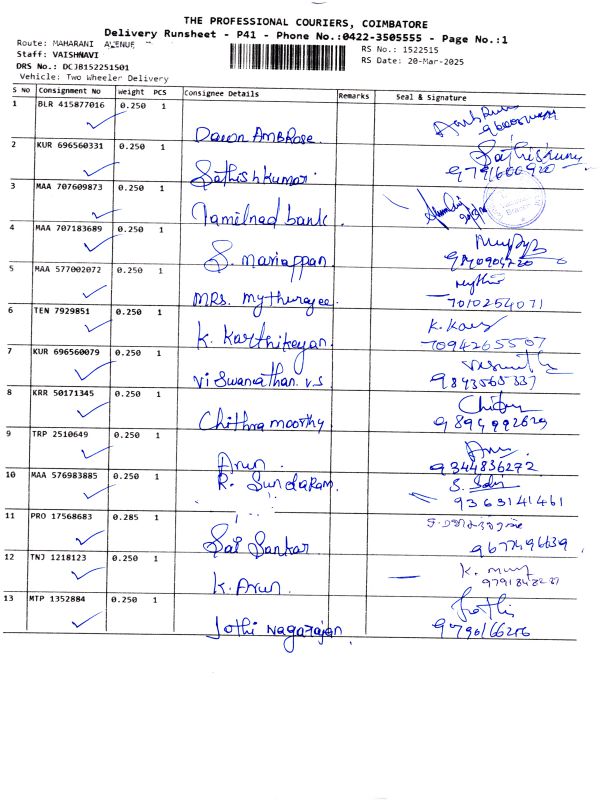 THE PROFESSIONAL COURIERS, COIMBATORE
Delivery Runsheet - P41 - Phone No.:0422-3505555 - Page No.:1
Route: MAHARANI AVENUE
RS No.: 1522515
Staff: VAISHNAVI
RS Date: 20-Mar-2025
DRS No.: DCJB152251501
Vehicle: Two Wheeler Delivery
S No Consignment No Weight PCS Consignee Details Remarks Seal & Signature
1 BLR 415877016 0.250 1
Davon AmbRose.
2 KUR 696560331 0.250 1
Sathishkumar
Sathiskumar
3 MAA 707609873 0.250 1
Tamilnad bank.
4 MAA 707183689 0.250 1
S. mariappan
5 MAA 577002072 0.250 1
MRS. mythurayee.
7010254071
6 TEN 7929851 0.250 1
K. Karthikeyan
7094265507
7 KUR 696560079 0.250 1
Viswanathan. v.s
9843565337
8 KRR 50171345 0.250 1
Chithra moorthy
9894992629
9 TRP 2510649 0.250 1
Arun.
9344836272
10 MAA 576983885 0.250 1
R. Sundaram.
9363141461
11 PRO 17568683 0.285 1
Sai Sankar
9677496639
12 TNJ 1218123 0.250 1
K. Arun.
13 MTP 1352884 0.250 1
Jothi Nagarajan
9790166276